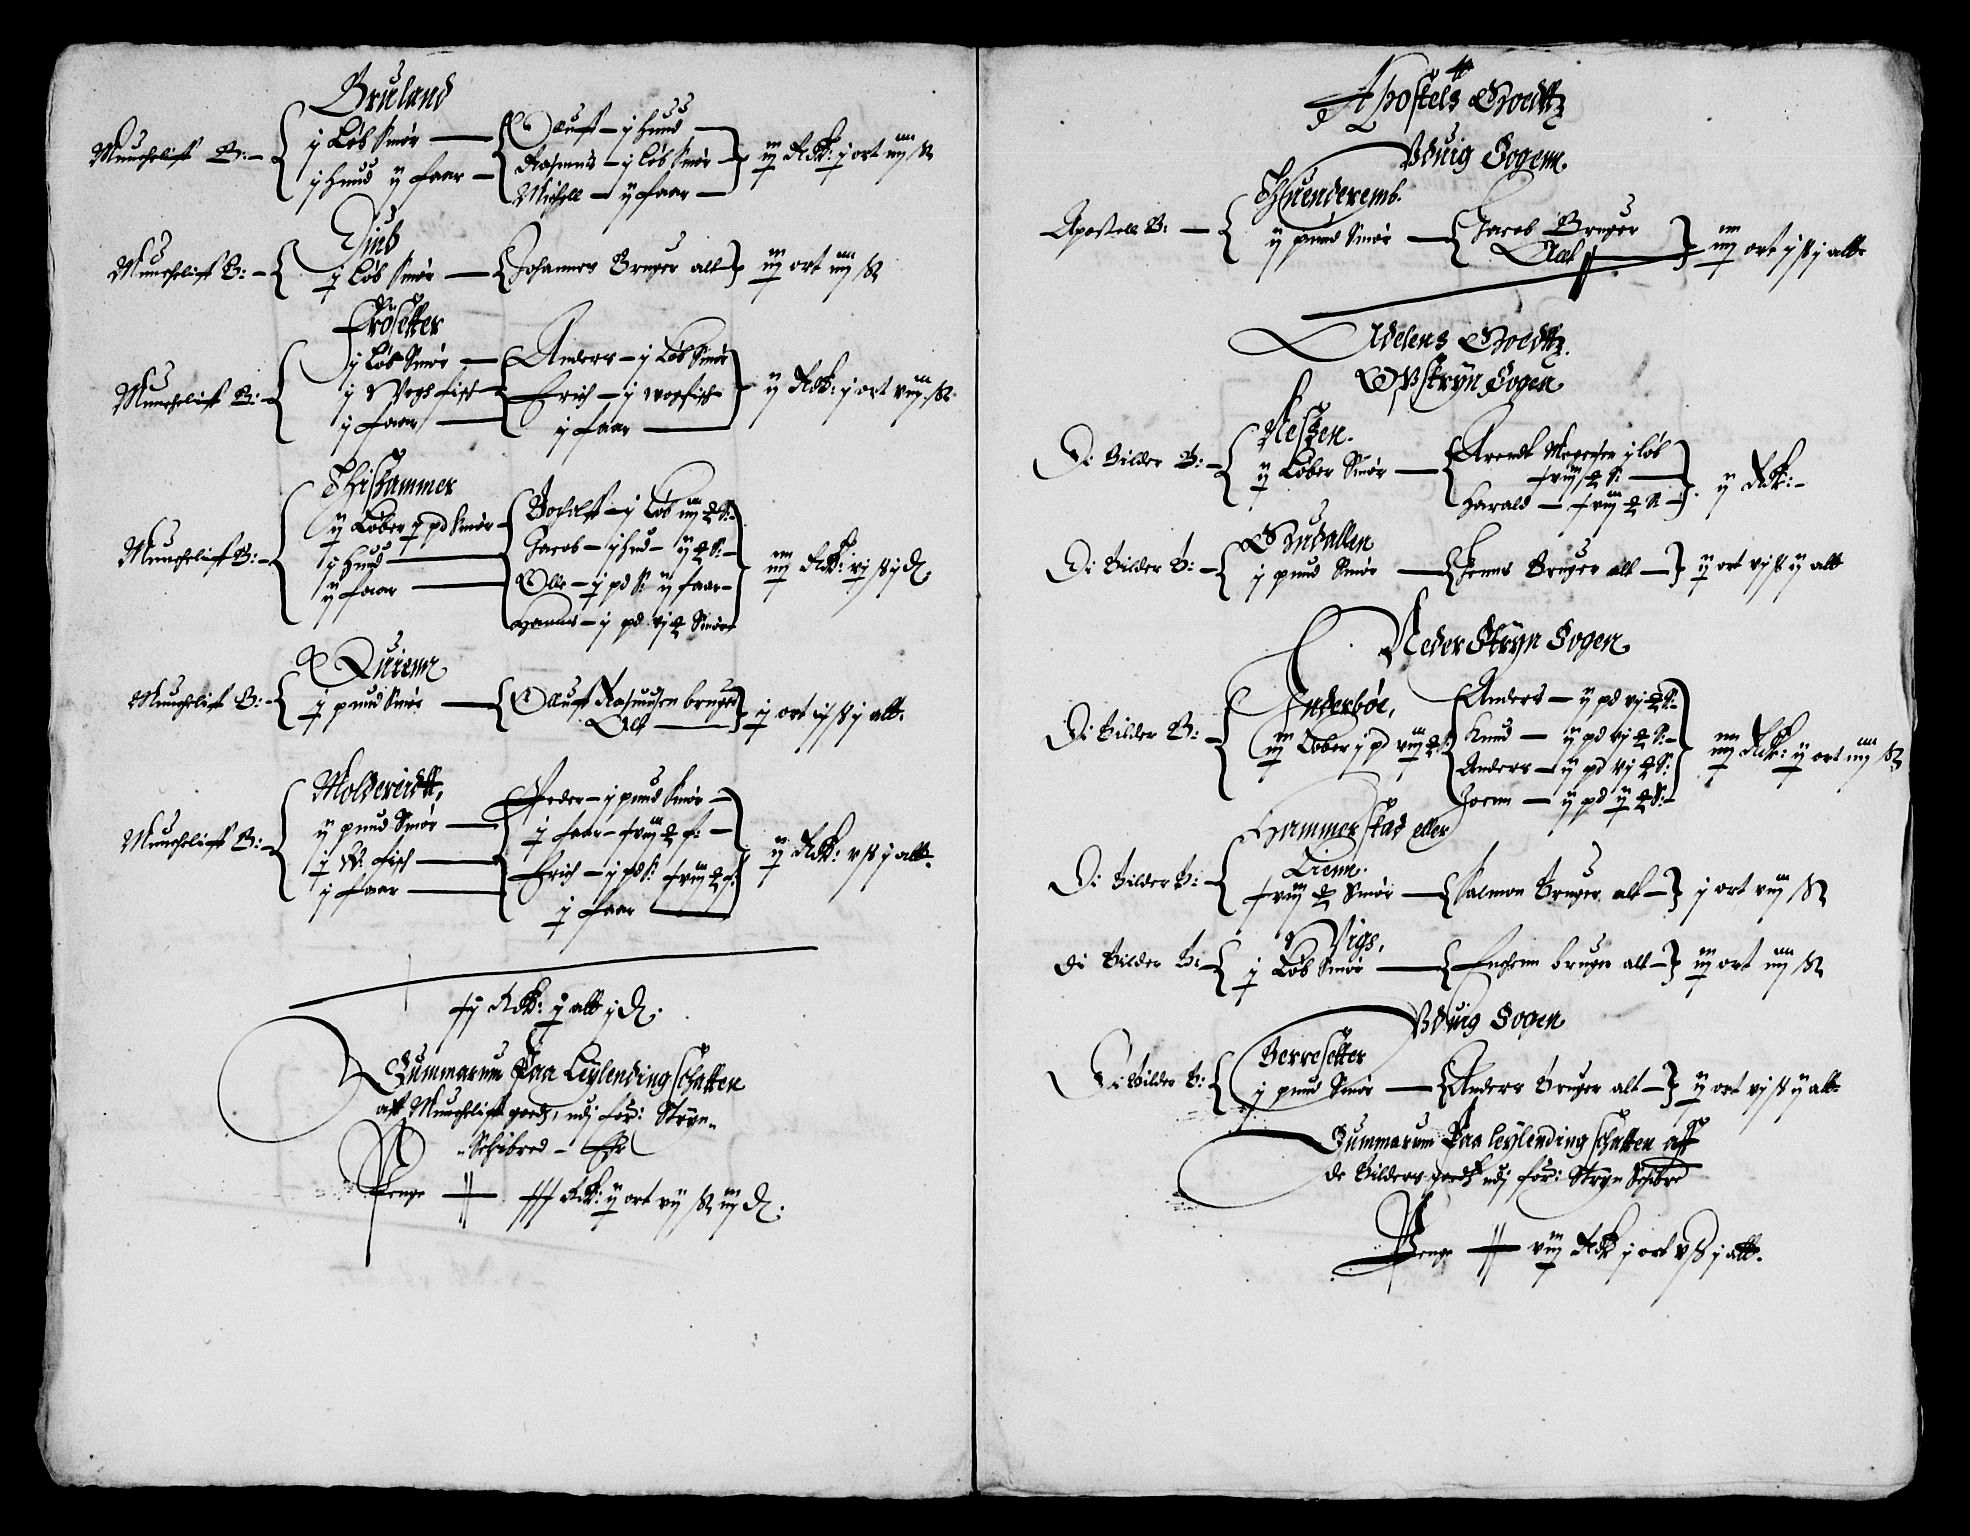 Bruland
Munchelift B:
j Løb Smør
j Hud ij faar
Oluff – j Hud
Rasmus – j løb smør
Michell – ij faar
iij Rdr: j ort iiij ß
Tiub
Munchelift B:
j Løb smør
Johannes Bruger alt
iij ort iiij ß
Frøsetter
Munchelift B:
j Løb Smør
j Vogh fisch
j faar
Anders – j Løb Smør
Erich – j wog fisch
j faar
ij Rdr: j ort viij ß
Hishammer
Munchelift B:
ij Løber j pd smør
j Hud
ij faar
j Løb
Jacob – j Hud –
Olle – j pd S: ij faar
Hanns – j pd vj Smør
iiij Rdr: vj ß j d.
Quienn
Munchelift B:
j pund Smør
Oluff Rasmusen bruger
Alt
j ort j alb.
Moldereidtt,
Munchelift B:
ij pund Smør
j W: fisch
j faar
Peder – j pund Smør
j faar –
Erich – j pd S:
j faar
ij Rdr: v ß j alb.
Rdr: j alb j d.
Summarum Paa Leylending schatten
aff Munchelift goeds, udj for: Stryn
Schibred – Ehr
Penge Rdr: ij ort vij ß iij d.
Apostels Goedtz
Vduig Sogenn.
Apostell B:
ij pund Smør
Jacob Bruger
Alt
iiij ort j ß j alb
Adelens Goedtz
Opstryn Sogen
Neszen.
Di Bilder B:
ij Løber Smør
Arendt Mogensen j løb
Harald –
ij Rdr:
Di Bilder B:
j pund Smør
Jenns Bruger alt
ij ort vj ß ij alb
Neder Stryn Sogen
Inderbøe,
Di Bilder B:
iij Løber j pd viij
Anders – ij pd vj S:
Knud – ij pd vj S:
Anders – ij pd vj S:
Joenn – ij pd ij S:
iiij Rdr: ij ort iiij ß
Hammerstad eller
Lienn.
Di Bilder B:
Smør
Salmon Bruger alt
j ort viij ß
Vigs,
Di Bilder B:
j Løb Smør
bruger alt
iij ort iiij ß
Vduig Sogen
Berresetter
Di Bilder B:
j pund Smør
Anders Bruger alt
ij ort vj ß ij alb
Summarum Paa Leylending schatten aff
de Bilders goeds udj for: Stryn Schibre
Penge viij Rdr j ort v ß j alb.